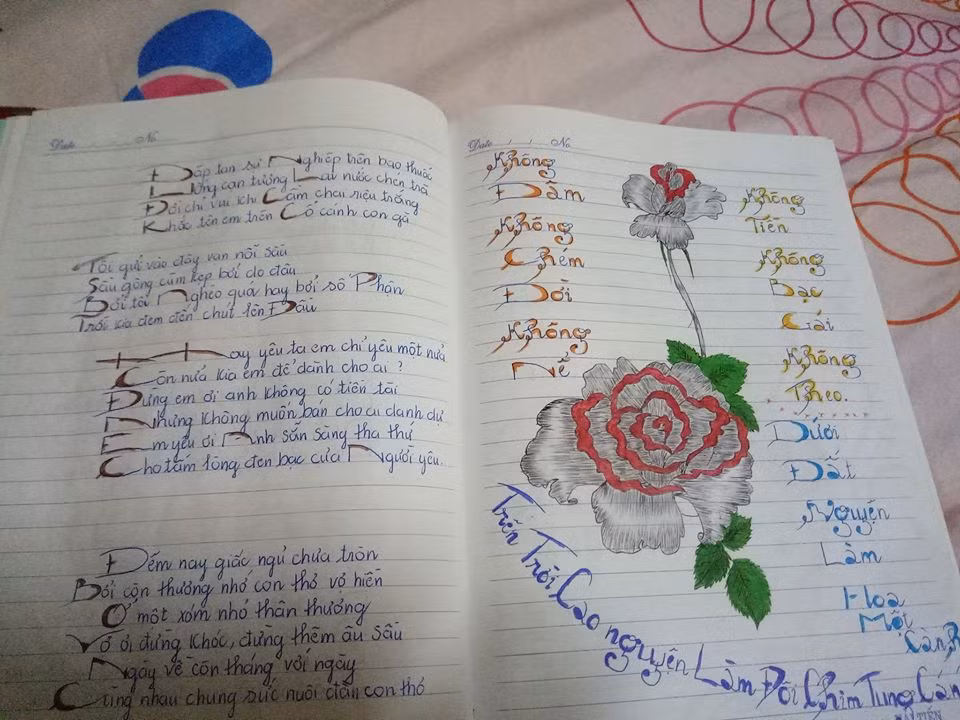 Date No.
Đập tan sự Nghiệp trên bao thuốc
Lưỡng cạn tưởng Lai nước chén trà
Đời chỉ vui khi Cầm chai riệu trắng
Khắc tên em trên Cổ cánh con gà
Tôi gửi vào đây vạn nỗi sầu
Sầu gông cùm kẹp bởi do đâu
Bởi tôi Nghèo quá hay bởi số Phận
Trời kia đem đến chút tên Đầu
Hay yêu ta em chỉ yêu một nửa
Còn nửa kia em để dành cho ai ?
Đừng em ơi anh không có tiền tài
Nhưng không muốn bán cho ai danh dự
Em yêu ơi Anh sẵn sàng tha thứ
Cho tấm lòng đen bạc của Người yêu.
Đêm nay giấc ngủ chưa tròn
Bởi còn thương nhớ con thơ vợ hiền
Ở một xóm nhỏ thân thương
Vợ ơi đừng khóc, đừng thêm âu sầu
Ngày về còn tháng với ngày
Cùng nhau chung sức nuôi đàn con thơ
Date / / No.
Không
Đâm
Không
Chém
Đời
Không
Nể
Không
Tiền
Không
Bạc
Gái
Không
Theo.
Dưới
Đất
Nguyện
Làm
Hoa
Một
Cành
Trên Trời Cao nguyện Làm Đôi Chim Tung Cánh